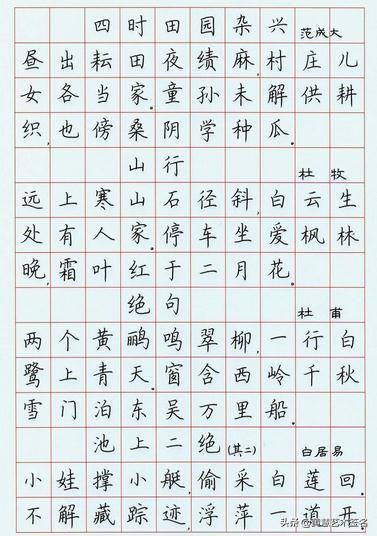 四时田园杂兴 范成大
昼出耘田夜绩麻,村庄儿
女各当家。童孙未解供耕
织,也傍桑阴学种瓜。
山行 杜牧
远上寒山石径斜,白云生
处有人家。停车坐爱枫林
晚,霜叶红于二月花。
绝句 杜甫
两个黄鹂鸣翠柳,一行白
鹭上青天。窗含西岭千秋
雪,门泊东吴万里船。
池上二绝(其二) 白居易
小娃撑小艇,偷采白莲回。
不解藏踪迹,浮萍一道开。
头条 @智慧艺术签名